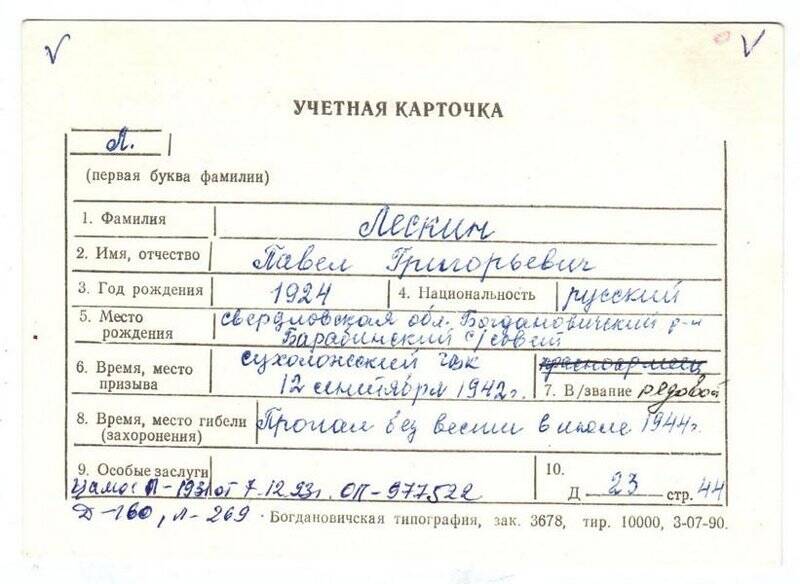 УЧЕТНАЯ КАРТОЧКА
Л.
(первая буква фамилии)
1. Фамилия Лескин
2. Имя, отчество Павел Григорьевич
3. Год рождения 1924 4. Национальность русский
5. Место рождения свердловская обл. Богдановичский р-н
Барабинский с/совет
6. Время, место призыва сухоложский гвк
12 сентября 1942г.
красноармеец
7. В/звание рядовой
8. Время, место гибели (захоронения) Пропал без вести в июле 1944г.
9. Особые заслуги
Цамо П-193 от 7.12.93г. ОП-977522
Д-160, Л-269
10.
Д 23 стр. 44
Богдановичская типография, зак. 3678, тир. 10000, 3-07-90.